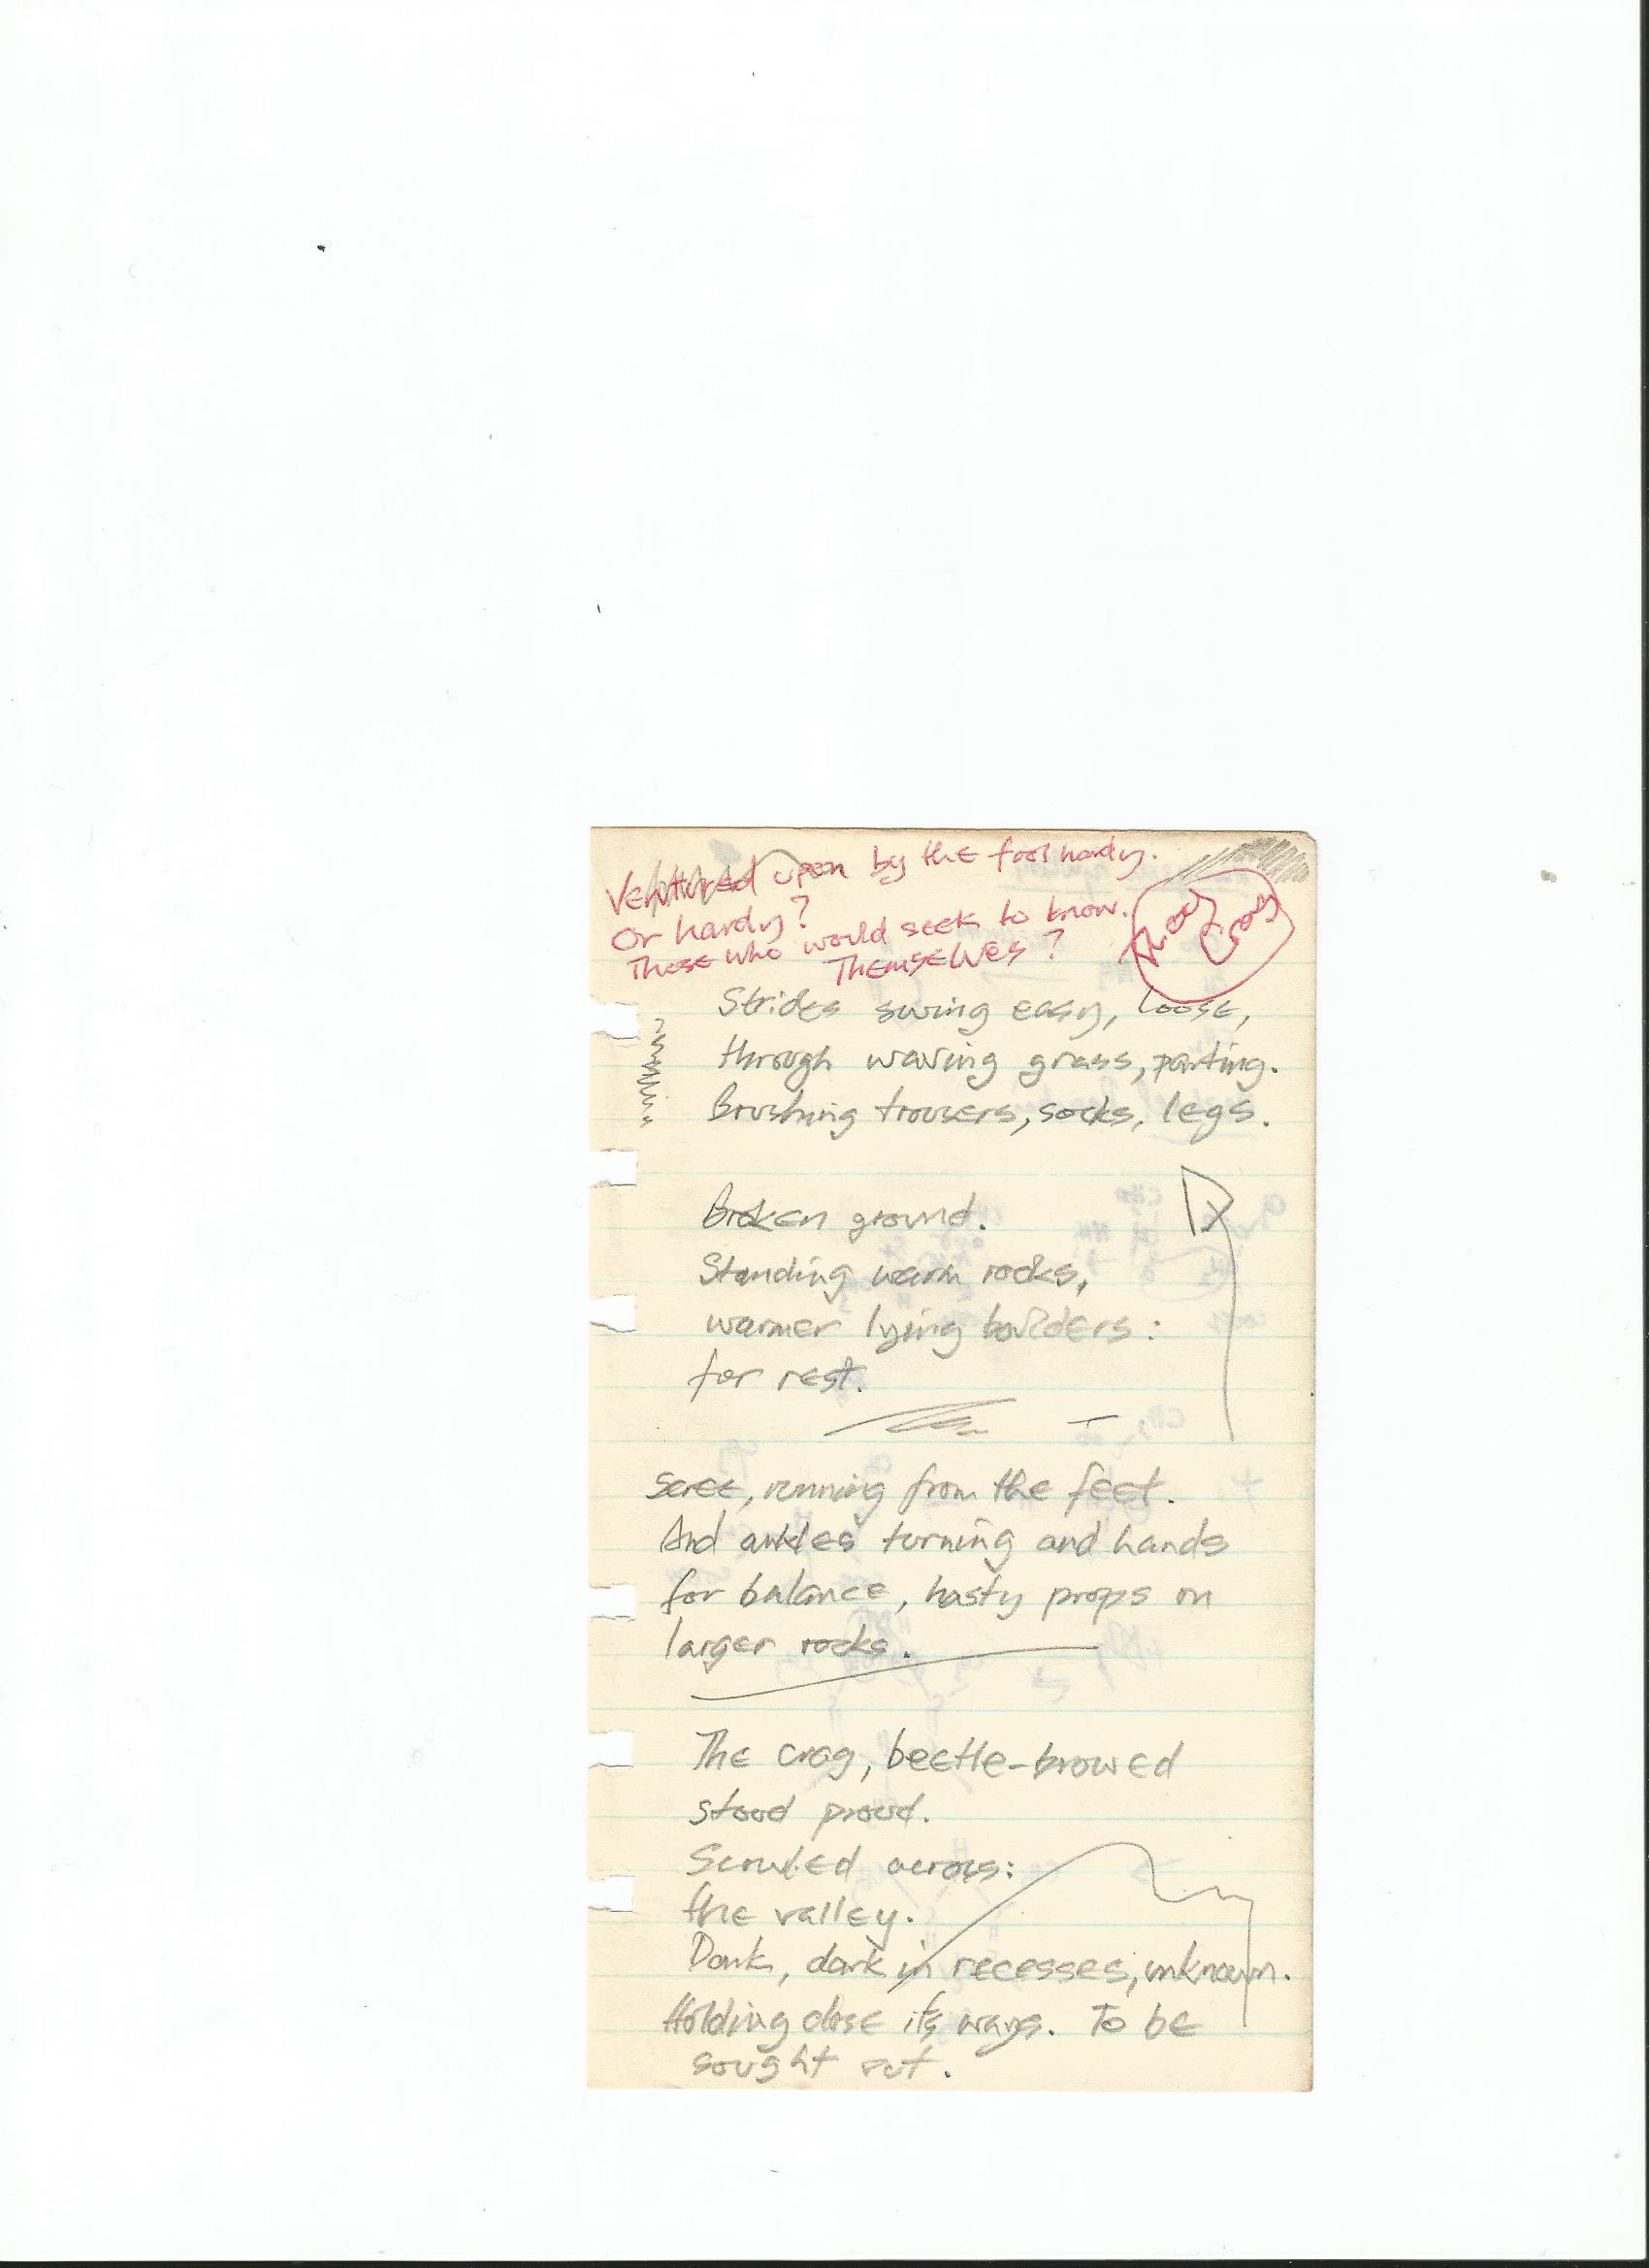 Ventured upon by the fool hardy.
Or hardy?
Those who would seek to know.
Themselves?
Strides swing easy, loose,
through waving grass, parting.
Brushing trousers, socks, legs.
Broken ground.
Standing warm rocks,
warmer lying boulders:
for rest.
scree, running from the feet.
And ankles turning and hands
for balance, hasty props on
larger rocks.
The crag, beetle-browed
stood proud.
Scowled across:
the valley.
Dank, dark in recesses, unknown.
Holding close its ways. To be
sought out.